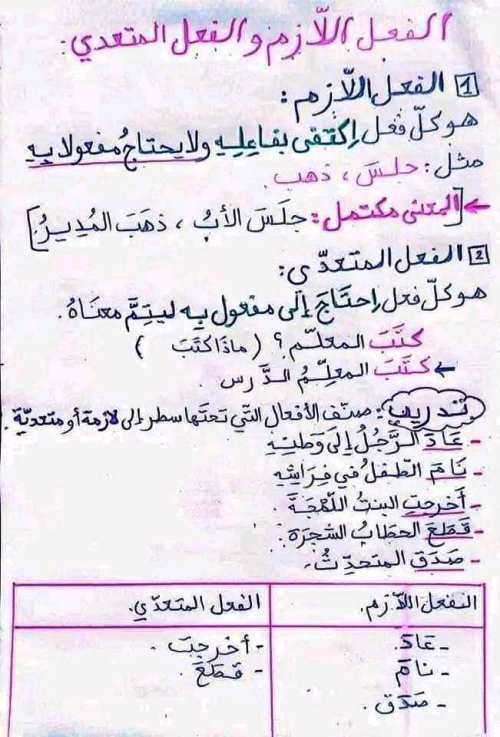 الفعل اللاّزم والفعل المتعدي:
1 الفعل اللاّزم:
هو كلّ فعل اِكتفى بفاعِلِهِ ولا يحتاجُ مفعولا بِهِ
مثل: جلسَ، ذهب.
[المعنى مكتمل: جلَسَ الأبُ، ذهَبَ المُدِيرُ]
2 الفعل المتعدّي:
هو كلّ فعل اِحتاجَ إلى مفعول بِهِ ليتِمَّ معناهُ.
كتَبَ المعلّم؟ (ماذا كتَبَ )
كتَبَ المعلِّمُ الدَّرس.
تدريب: صنّف الأفعال التّي تحتَها سطر إلى لازمة أو متعديّة.
- عَادَ الرَّجُلُ إلى وَطنِهِ
- نَامَ الطّفلُ في فِرَاشِهِ
- أخرجتِ البنتُ اللُّمْجَةَ.
- قَطَعَ الحطّابُ الشجَرَةَ.
- صَدَقَ المتحدِّثُ.
الفعل اللاّزم. الفعل المتعدّي.
- عَادَ. - أخرجتْ.
- نامَ - قطَعَ.
- صدَق.